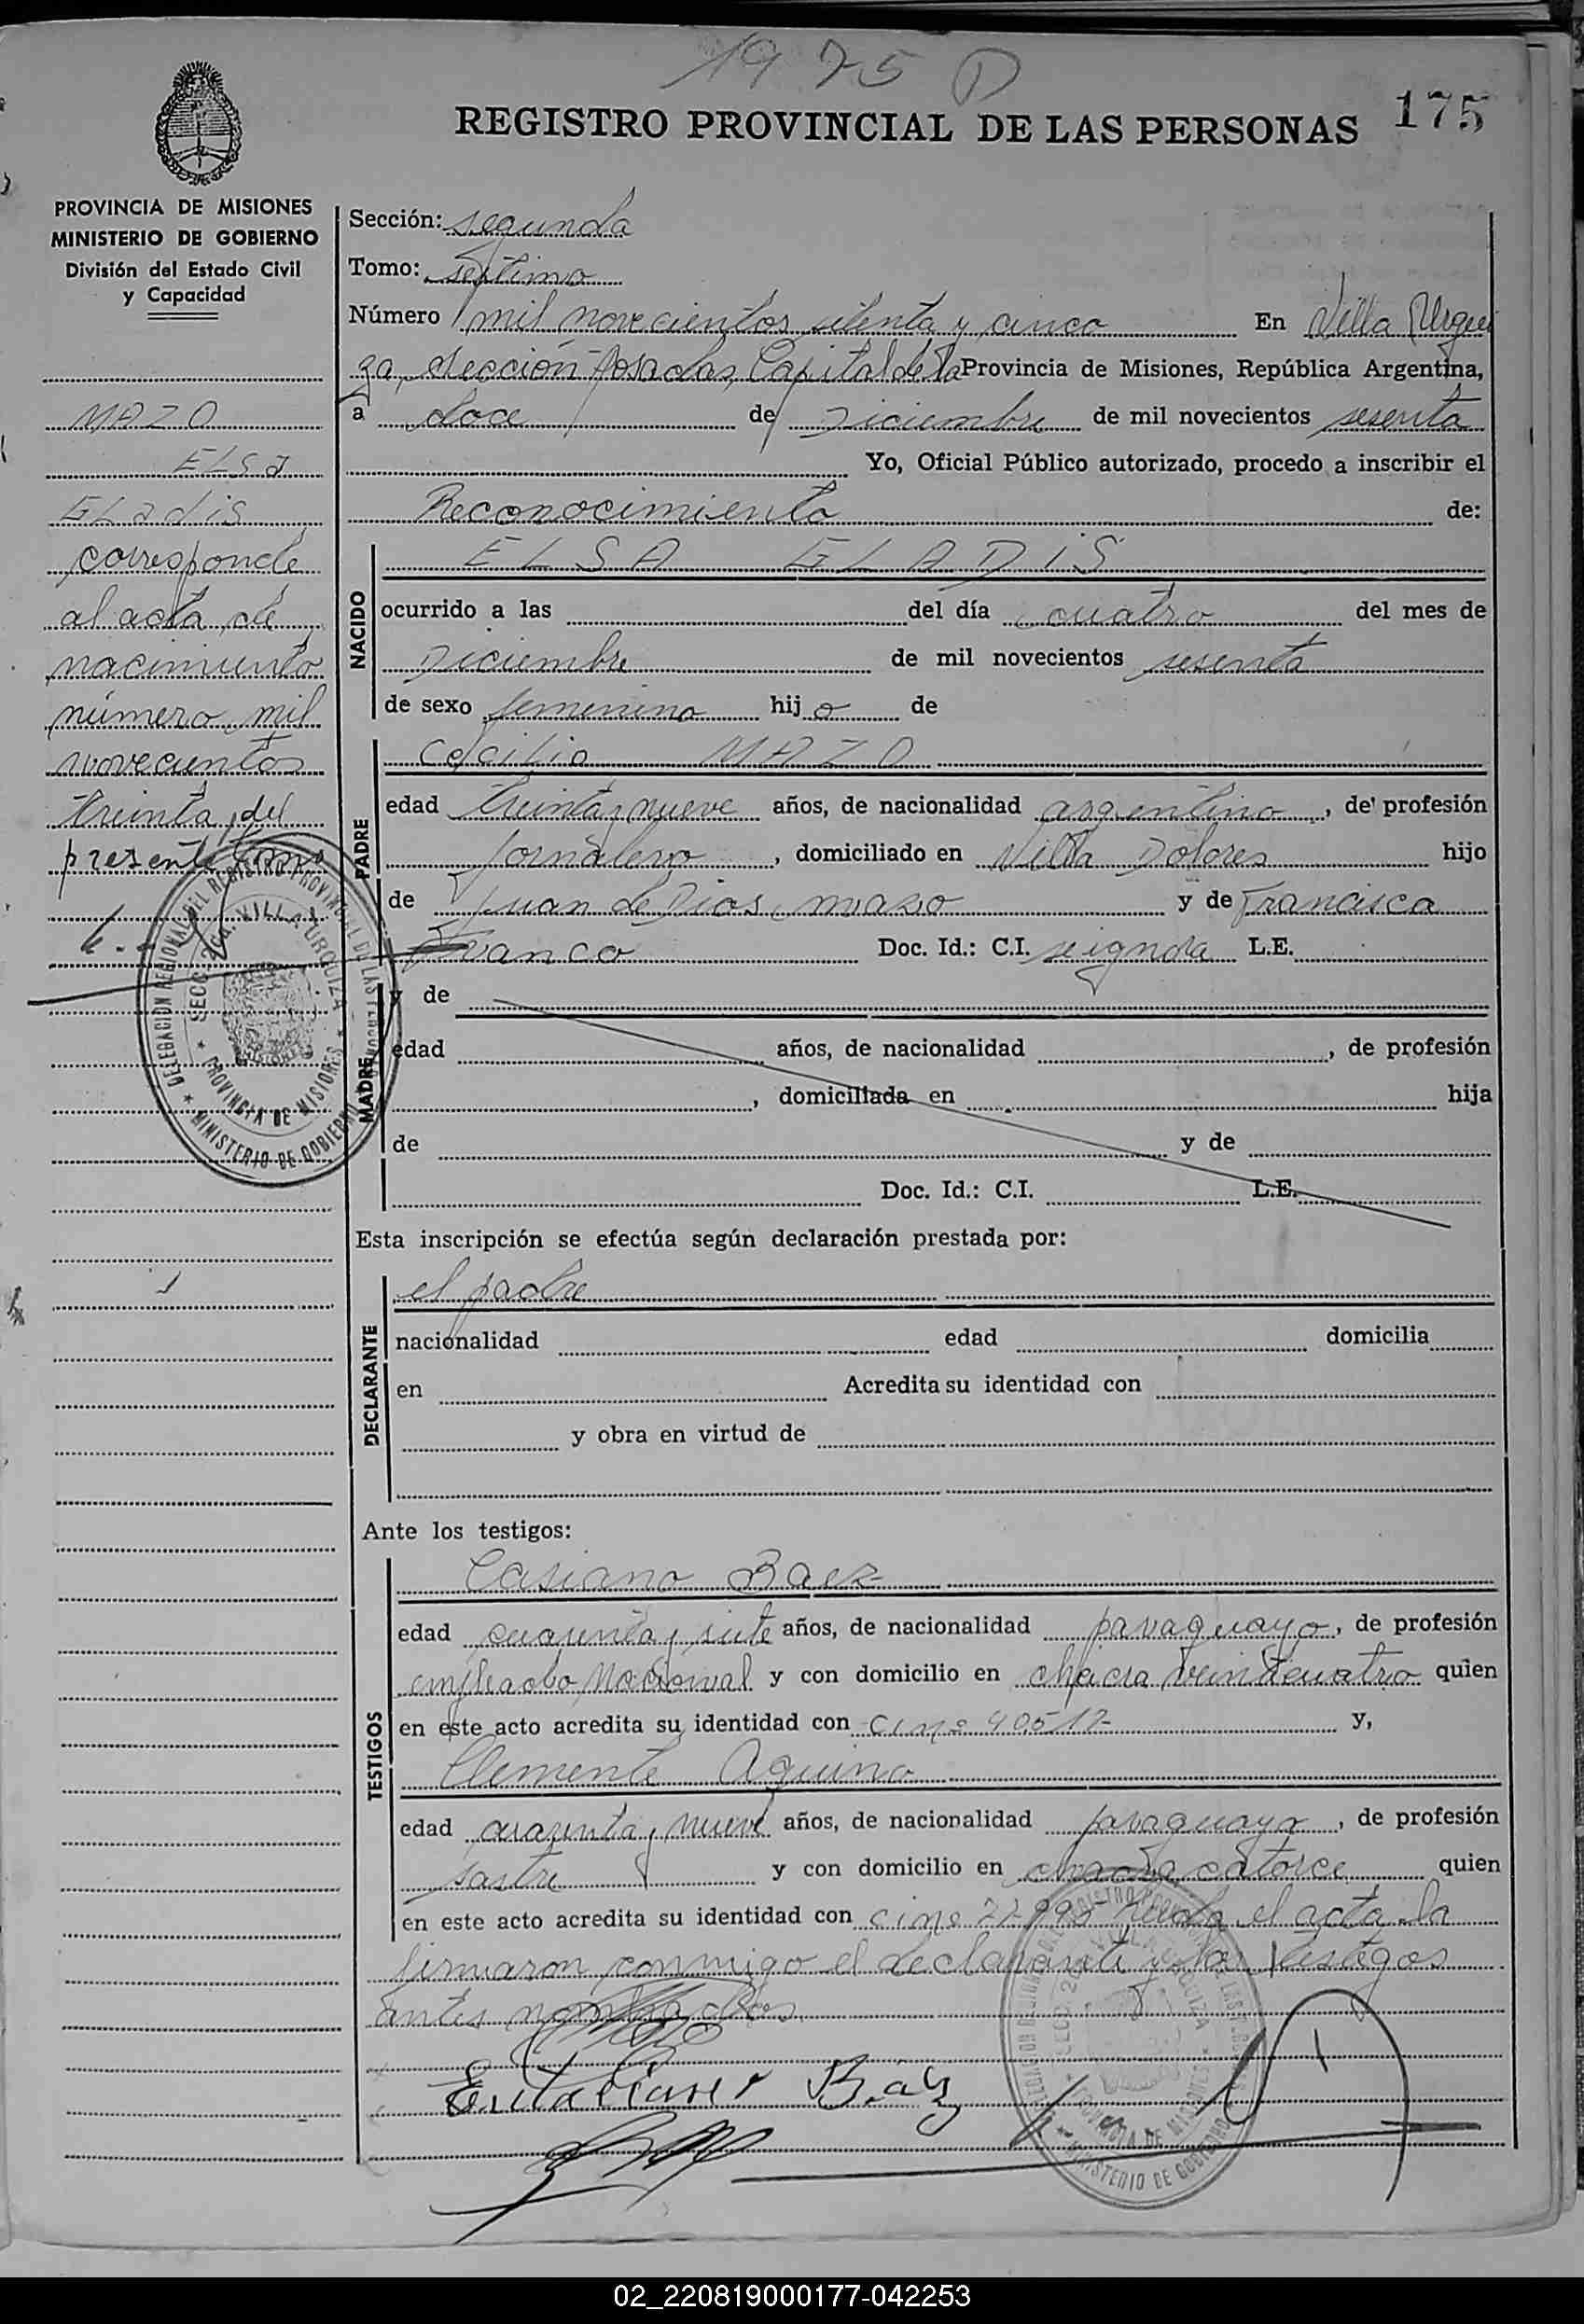 1975
175
REGISTRO PROVINCIAL DE LAS PERSONAS
PROVINCIA DE MISIONES
MINISTERIO DE GOBIERNO
División del Estado Civil
y Capacidad
MAZO
ELSA
GLadis
corresponde
al acta de
nacimiento
número mil
novecientos
treinta, del
presente tomo
DELEGACION REGIONAL DEL REGISTRO PROVINCIAL DE LAS PERSONAS
SECC. 2da. VILLA URQUIZA
PROVINCIA DE MISIONES
MINISTERIO DE GOBIERNO
Sección: segunda
Tomo: septimo
Número mil novecientos setenta y cinco En Villa Urqui
za, sección Posadas, Capital de la Provincia de Misiones, República Argentina,
a doce de Diciembre de mil novecientos sesenta
Yo, Oficial Público autorizado, procedo a inscribir el
Reconocimiento de:
NACIDO
ELSA GLADIS
ocurrido a las del día cuatro del mes de
Diciembre de mil novecientos sesenta
de sexo femenino hij o de
PADRE
Cecilio MAZO
edad treinta y nueve años, de nacionalidad argentino, de profesión
Jornalero, domiciliado en Villa Dolores hijo
de Juan de Dios mazo y de Francisca
Doc. Id.: C.I. L.E.
MADRE
y de
edad años, de nacionalidad , de profesión
, domiciliada en hija
de y de
Doc. Id.: C.I. L.E.
Esta inscripción se efectúa según declaración prestada por:
DECLARANTE
el padre
nacionalidad edad domicilia
en Acredita su identidad con
y obra en virtud de
Ante los testigos:
TESTIGOS
Casiano Baez
edad cuarenta y siete años, de nacionalidad paraguayo, de profesión
empleado Nacional y con domicilio en chacra veinticuatro quien
en este acto acredita su identidad con y,
Clemente Aquino
edad cuarenta y nueve años, de nacionalidad paraguayo, de profesión
sastre y con domicilio en chacra catorce quien
en este acto acredita su identidad con leida el acta la
firmaron conmigo el declarante y los testigos
antes nombrados
02_220819000177-042253